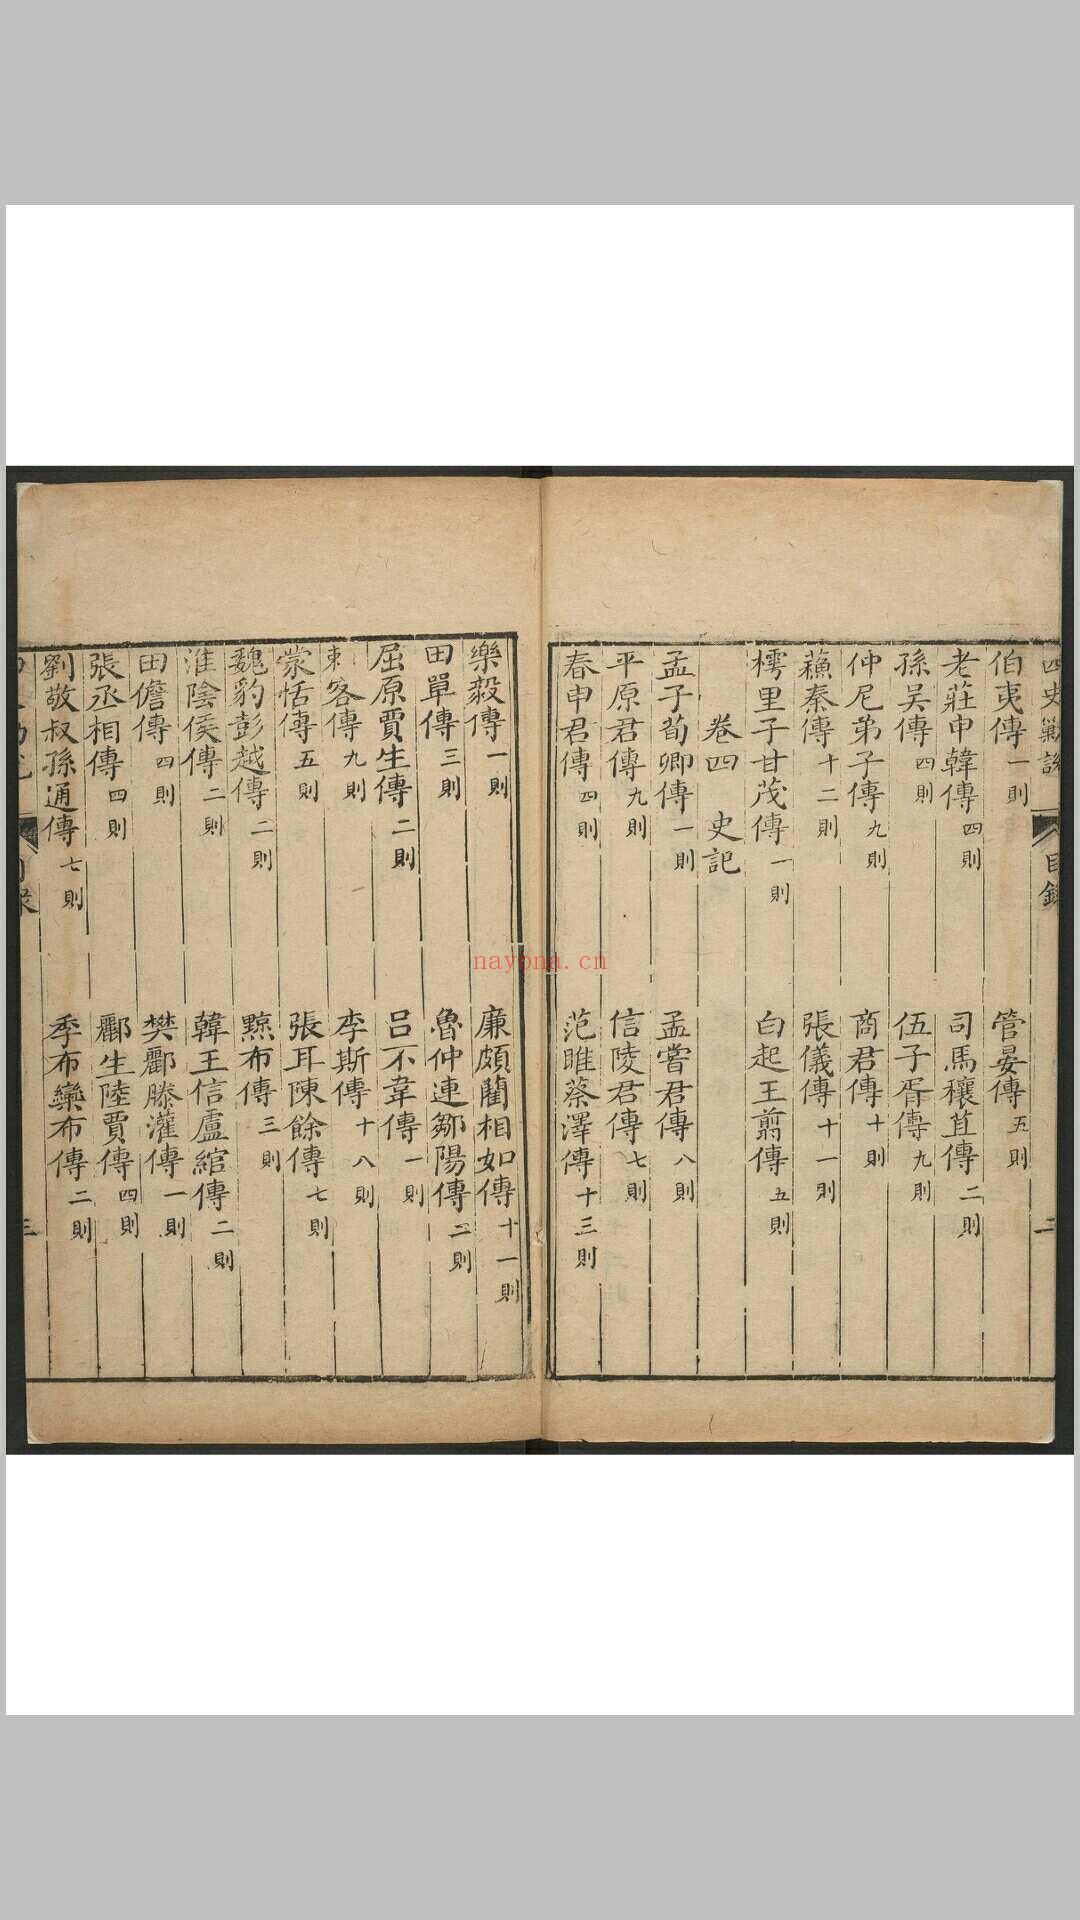 伯夷傳一則 管晏傳五則
老莊申韓傳四則 司馬穰苴傳二則
孫吳傳四則 伍子胥傳九則
仲尼弟子傳九則 商君傳十則
蘓秦傳十二則 張儀傳十一則
樗里子甘茂傳一則 白起王翦傳五則
卷四 史記
孟子荀卿傳一則 孟嘗君傳八則
平原君傳九則 信陵君傳七則
春申君傳四則 范睢蔡澤傳十三則
樂毅傳一則 廉頗藺相如傳十一則
田單傳三則 魯仲連鄒陽傳二則
屈原賈生傳二則 呂不韋傳一則
刺客傳九則 李斯傳十八則
蒙恬傳五則 張耳陳餘傳七則
魏豹彭越傳二則 黥布傳三則
淮陰侯傳二則 韓王信盧綰傳二則
田儋傳四則 樊酈滕灌傳一則
張丞相傳四則 酈生陸賈傳四則
劉敬叔孫通傳七則 季布欒布傳二則
四史 目錄 二
三
nayona.cn